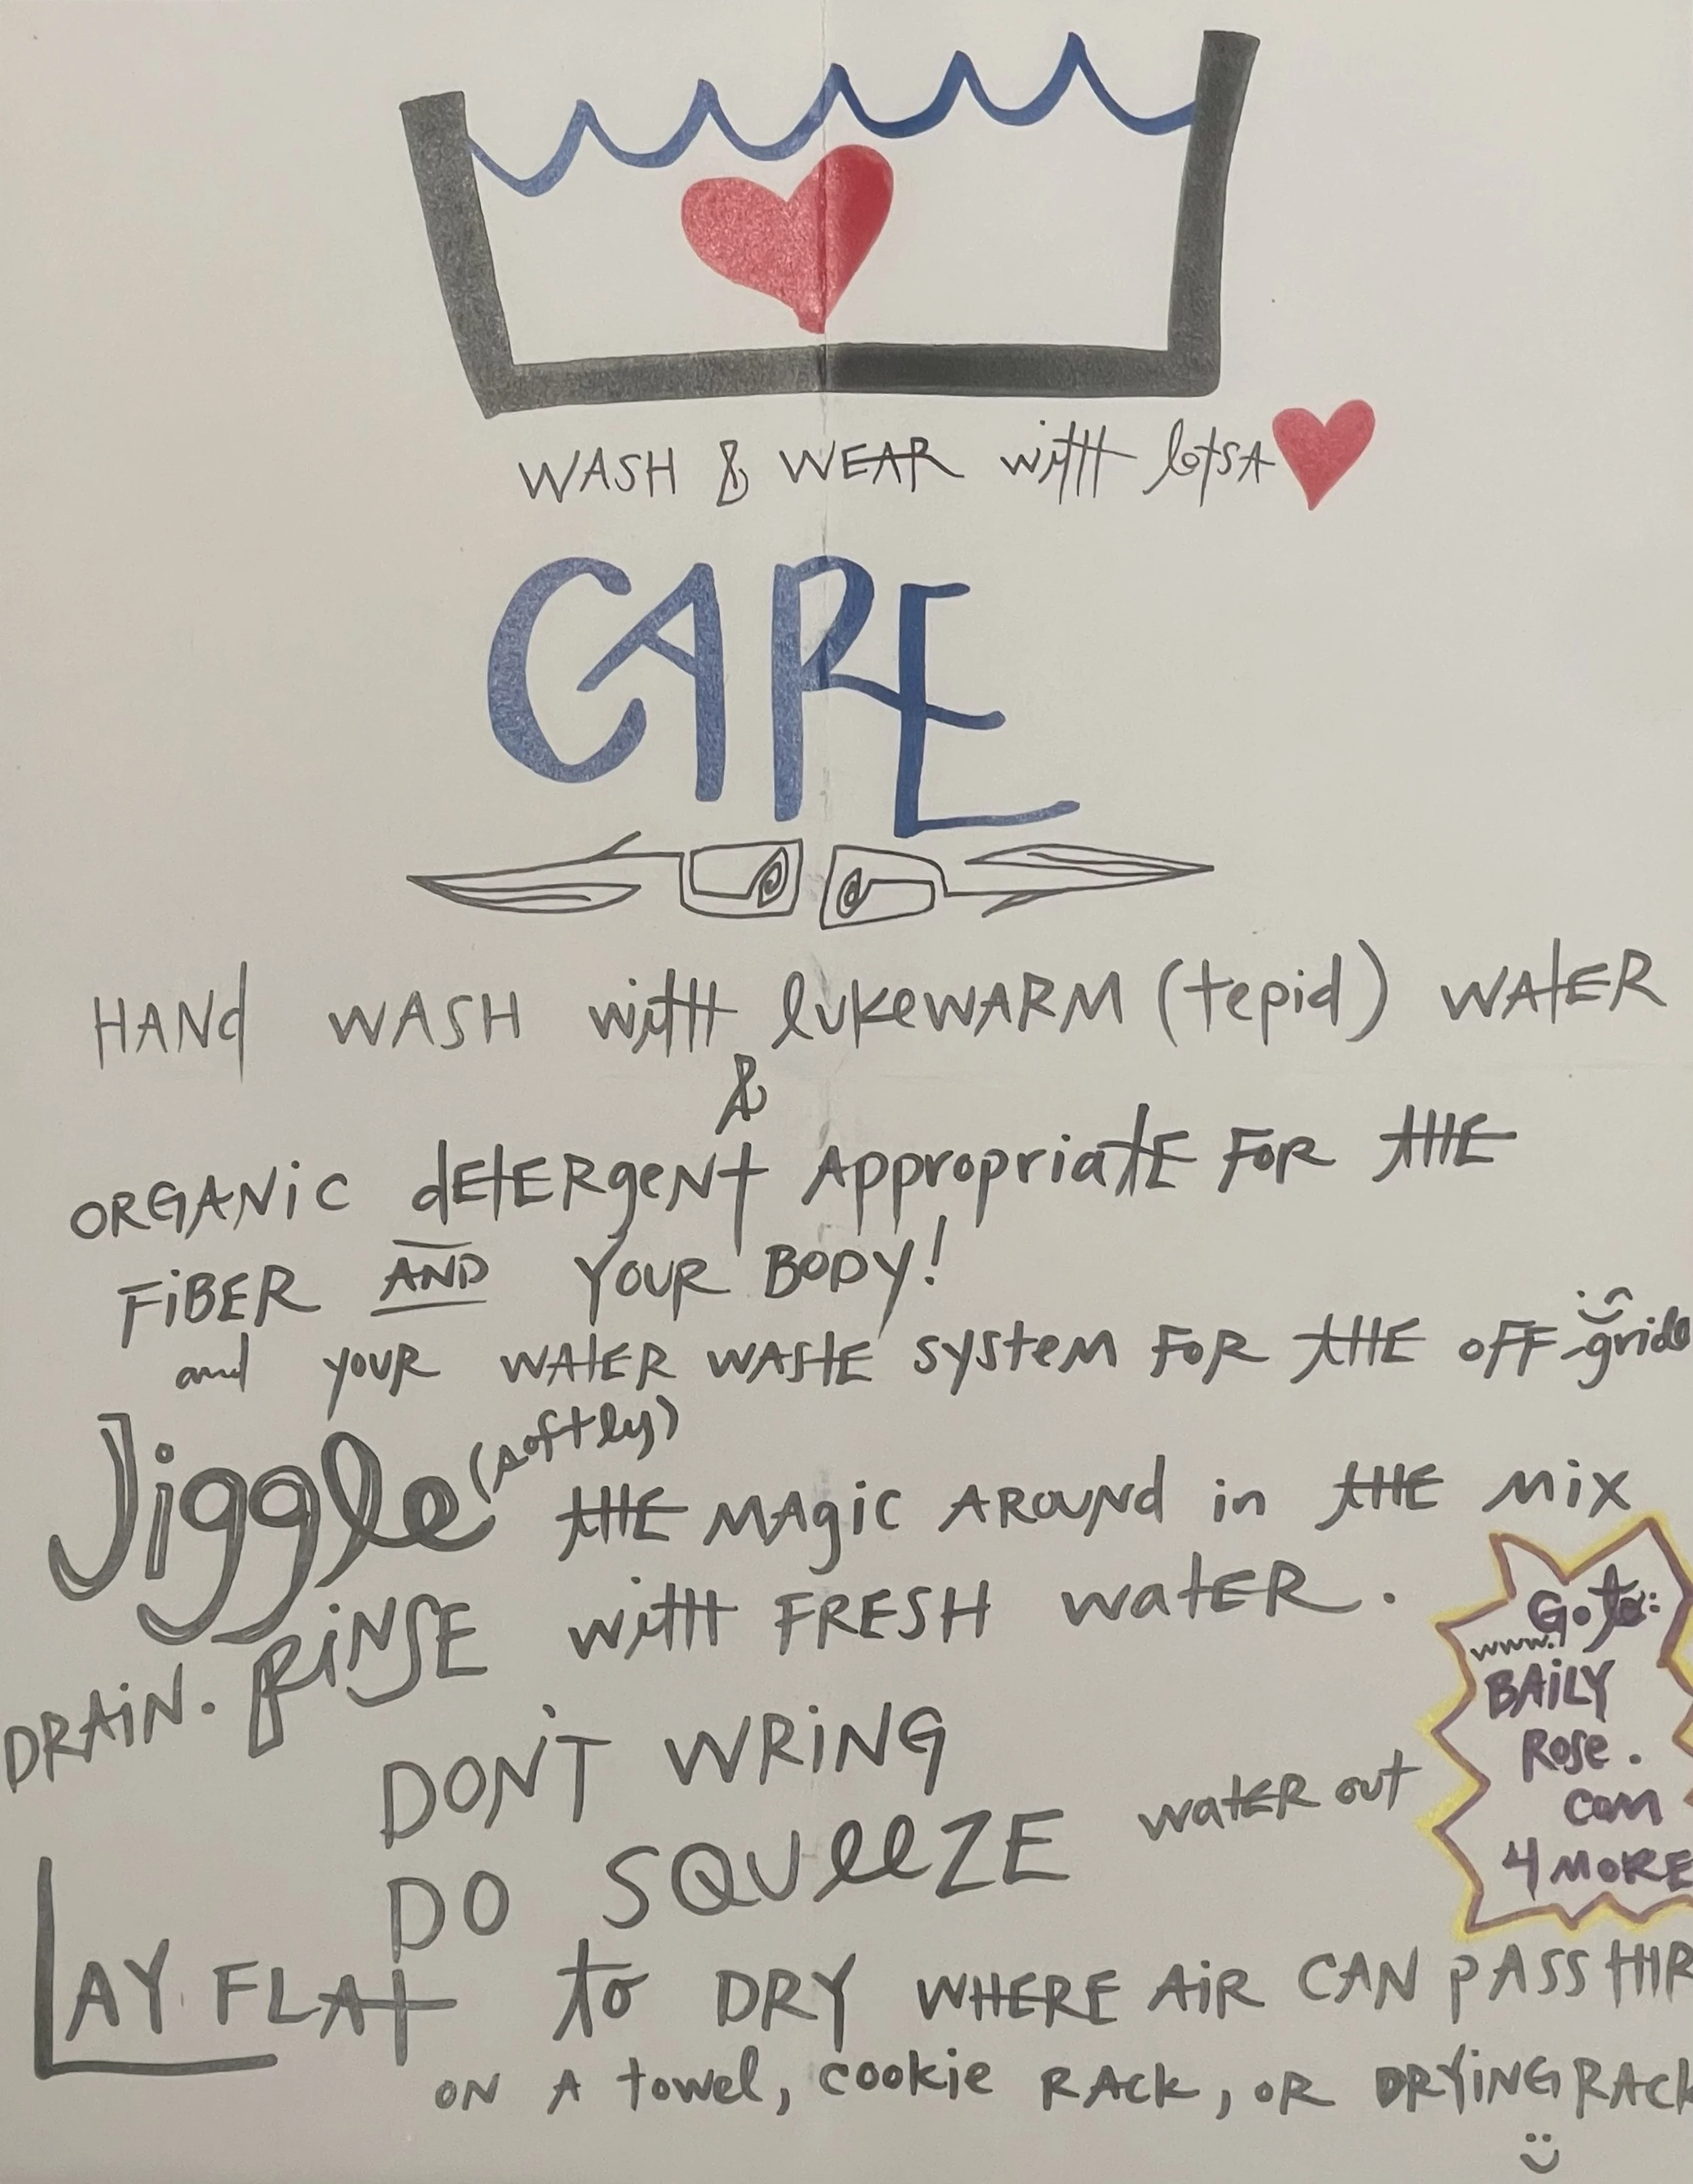 WASH & WEAR with lotsA
CARE
HANd WASH with lukeWARM (tepid) WAtER
&
ORGANiC dEtERgeNt AppropriatE FOR tHE
FiBER AND YOUR BODY!
and YOUR WAtER WAStE system FOR tHE OFF-grid
Jiggle (softly) tHE MAgiC AROUNd in tHE MiX
DRAiN. RiNSE with FRESH watER.
DON'T WRiNG
DO SQUeeZE watER out
Go to:
www.
BAiLY
Rose.
com
4 MORE
LAY FLAt to DRY WHERE AiR CAN pASS tHR
ON A towel, cookie RAck, OR DRYiNG RACk